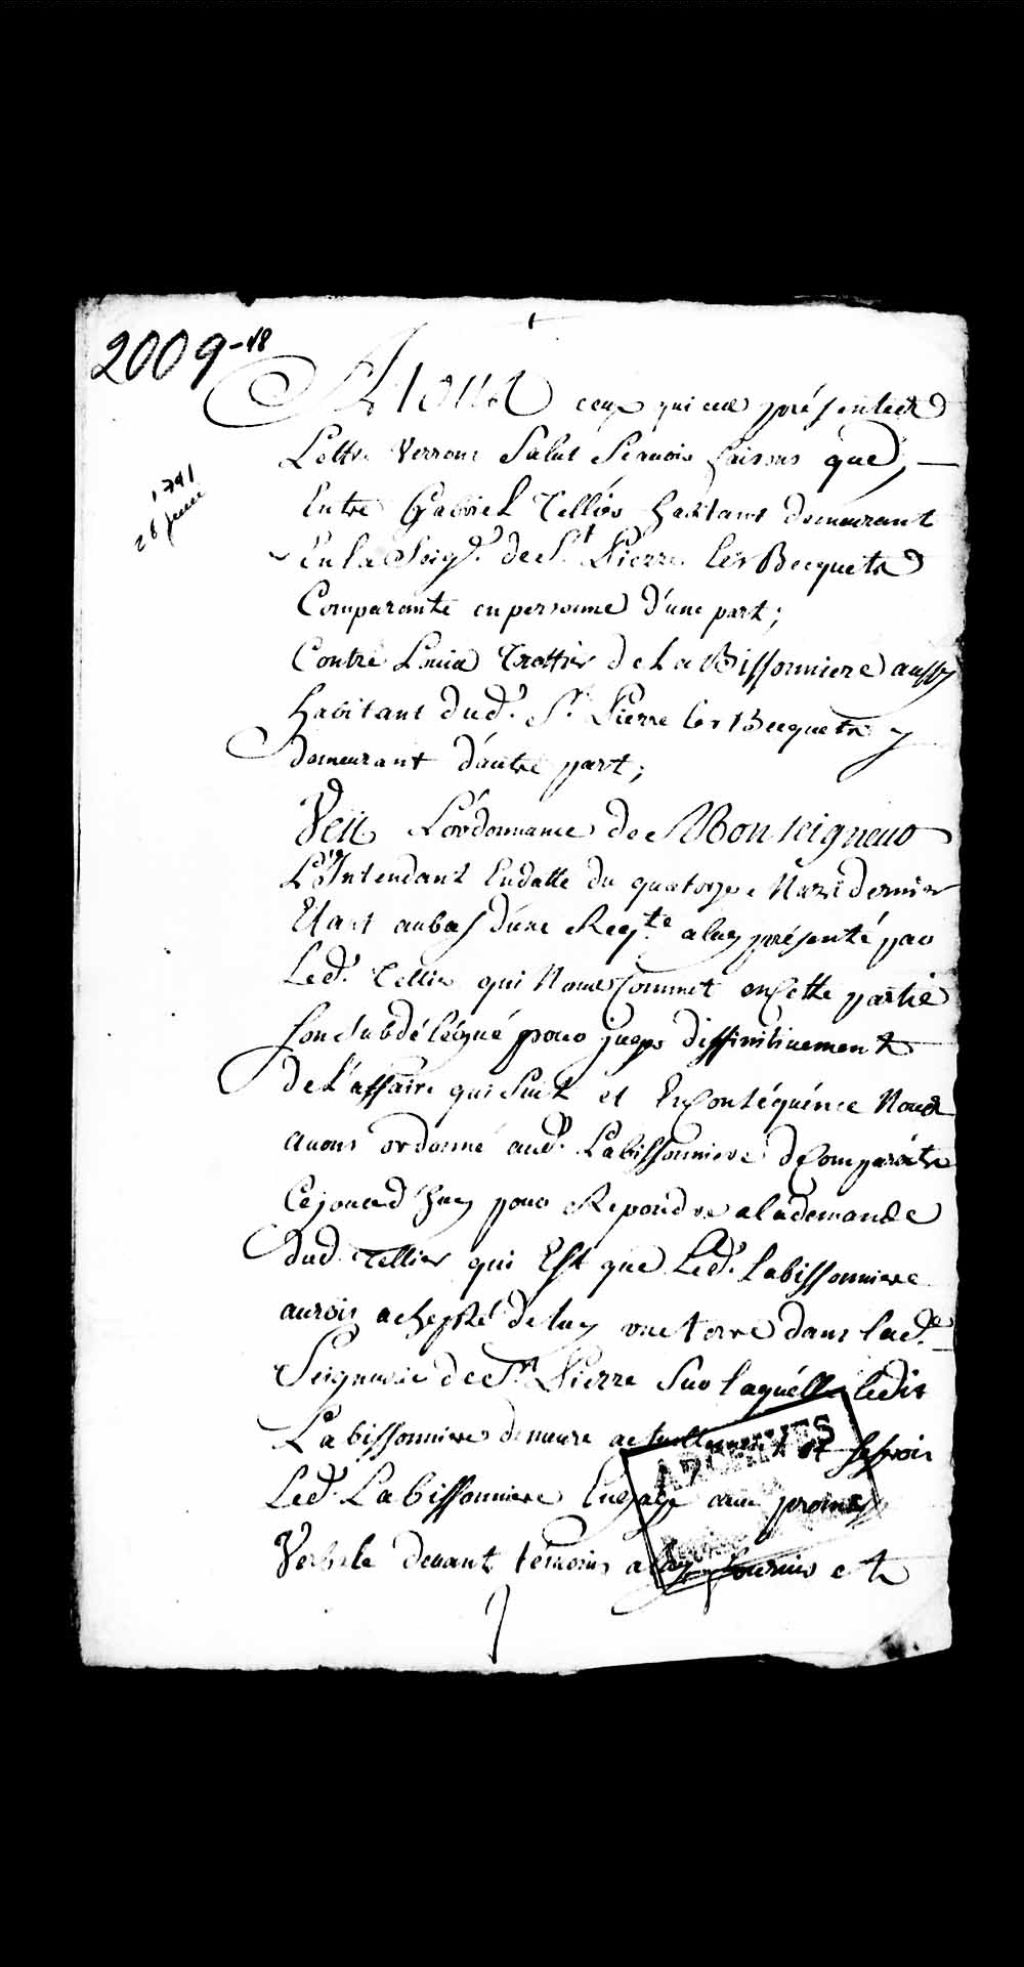 2009-18
A tous ceux qui ces présentes
Lettres Verrons Salut Scavoir faisons que,
1741
26 juin
Entre Gabriel Tellier habitant demeurant
En la Seigr. de St. Pierre les Becquets
Comparante en personne d'une part;
Contre Louis Trottier de La Bissonniere aussy
habitant dud. St. Pierre les Becquets y
demeurant d'autre part;
Veü L'ordonnance de Monseigneur
L'Intendant En datte du quatorze Mars dernier
Etant aubas d'une Reqte. a luy présenté par
Led. Tellier qui Nous Commet en Cette partie
son Subdélégué pour juger diffinitivement
de L'affaire qui Suit et En Conséquence Nous
avons ordonné aud. Labissonniere de Comparoitre
Cejourd'huy pour Repondre a la demande
dud. Tellier qui Est que Led. Labissonniere
auroit achepté de luy une terre dans lad.e
Seigneurie de St. Pierre Sur laquélle ledit
Labissonniere demeure actuellement et
Led. Labissonniere Engagé
Verbale devant témoins a luy fournir et
ARCHIVES